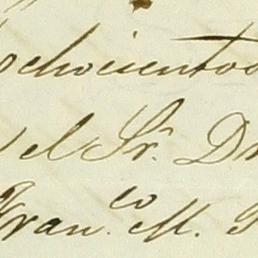 ochocientos
el Sr. D
Fran.co M.